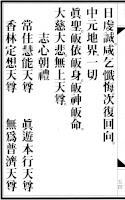 日虔誠咸乞懺悔次復回向
中元地界一切
眞聖皈依皈身皈神皈命
大慈大悲無上天尊
志心朝禮
常住慧能天尊
眞遊本行天尊
香林定想天尊
無爲普濟天尊